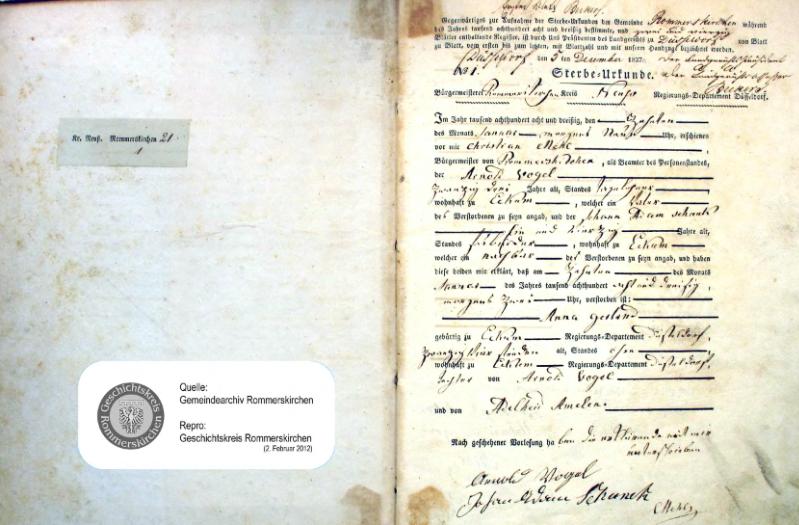 Kr. Neuß. Rommerskirchen 21.
1
Geschichtskreis
Rommerskirchen
Quelle:
Gemeindearchiv Rommerskirchen
Repro:
Geschichtskreis Rommerskirchen
(2. Februar 2012)
Gegenwärtiges zur Aufnahme der Sterbe-Urkunden der Gemeinde Rommerskirchen während
des Jahres tausend achthundert acht und dreißig bestimmte, und zwei und vierzig
Blätter enthaltende Register, ist durch Uns Präsidenten des Landgerichts zu Düsseldorf von Blatt
zu Blatt, vom ersten bis zum letzten, mit Blattzahl und mit unserm Handzuge bezeichnet worden.
Düsseldorf den 5 ten Dezember 1837. Der Landgerichts Präsident
No 1. Sterbe-Urkunde.
Bürgermeisterei Rommerskirchen Kreis Neuß Regierungs-Departement Düsseldorf.
Im Jahr tausend achthundert acht und dreißig, den Zehnten
des Monats Januar, morgens Neun Uhr, erschienen
vor mir Christian Mehl
Bürgermeister von Rommerskirchen, als Beamter des Personenstandes,
der Arnold Vogel
zwanzig drei Jahre alt, Standes Tagelöhner
wohnhaft zu Eckum, welcher ein Vater
des Verstorbenen zu seyn angab, und der Johann Adam Schunck
ein und vierzig Jahre alt,
Standes wohnhaft zu Eckum
welcher ein Nachbar des Verstorbenen zu seyn angab, und haben
diese beiden mir erklärt, daß am Zehnten des Monats
Januar des Jahres tausend achthundert acht und dreißig,
morgens zwei Uhr, verstorben ist:
Anna
gebürtig zu Eckum Regierungs-Departement Düsseldorf,
Stunden alt, Standes ohne
wohnhaft zu Eckum Regierungs-Departement Düsseldorf
Tochter von Arnold Vogel
und von Adelheid Amelen
Nach geschehener Vorlesung haben die mit mir
unterschrieben
Arnold Vogel
Johan Adam Schunck
Mehl